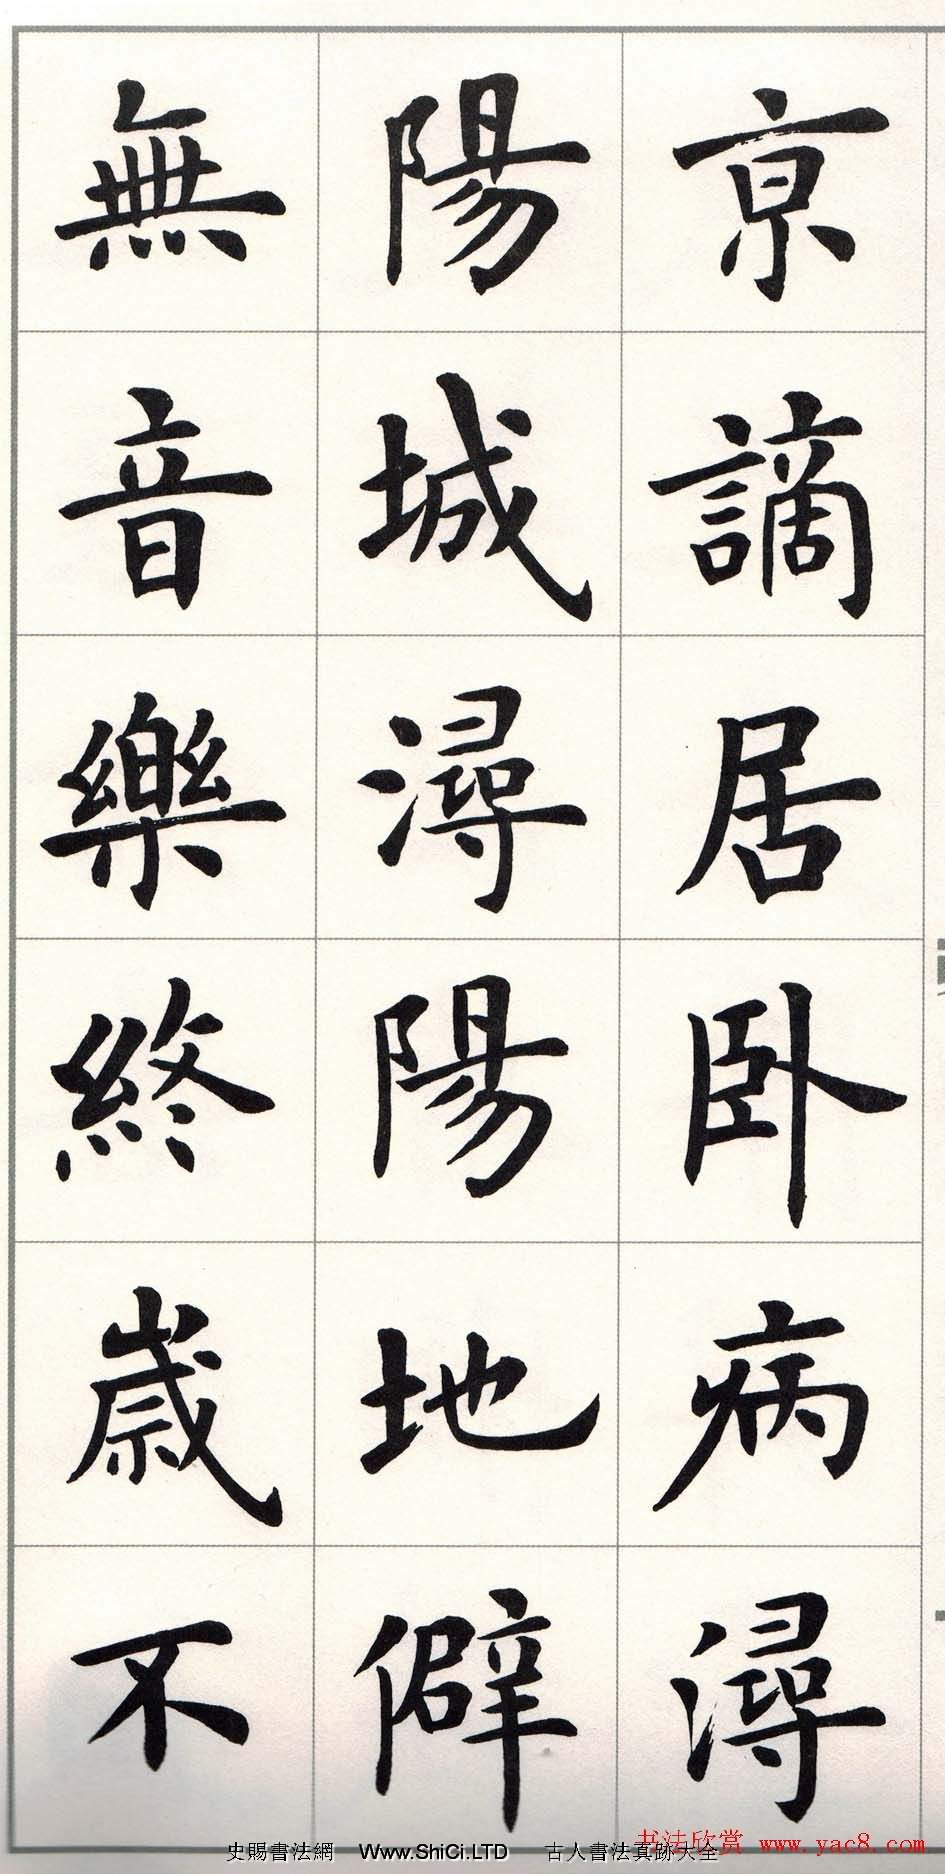 京謫居卧病潯
陽城潯陽地僻
無音樂終歲不
书法欣赏 www.yac8.com
史賜書法網 Www.ShiCi.LTD 古人書法真跡大全